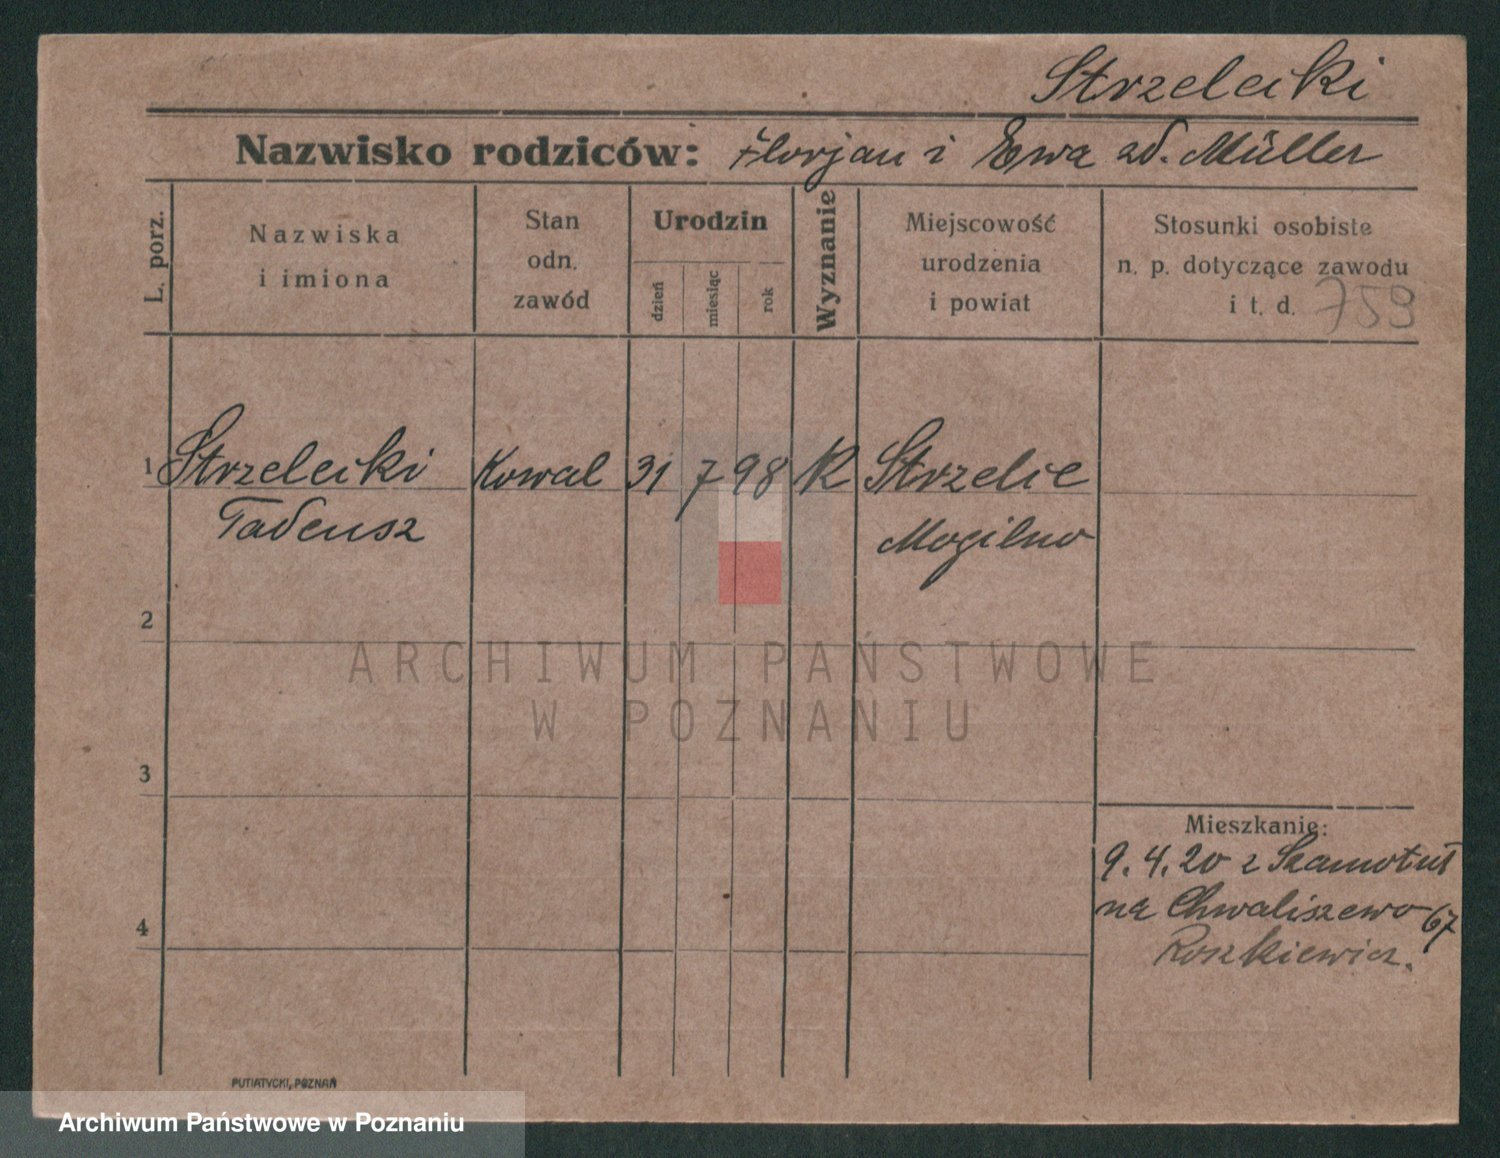 Strzelecki
Nazwisko rodziców: Florjan i Ewa zd. Müller
L. porz.
Nazwiska
i imiona
Stan
odn.
zawód
Urodzin
dzień
miesiąc
rok
Wyznanie
Miejscowość
urodzenia
i powiat
Stosunki osobiste
n. p. dotyczące zawodu
i t. d. 759
1 Strzelecki Kowal 31 7 98 K Strzelce
Tadeusz Mogilno
2
ARCHIWUM PAŃSTWOWE
W POZNANIU
3
Mieszkanie:
9.4.20 z Szamotuł
na Chwaliszewo 67
4
Roszkiewicz.
PUTIATYCKI, POZNAŃ
Archiwum Państwowe w Poznaniu